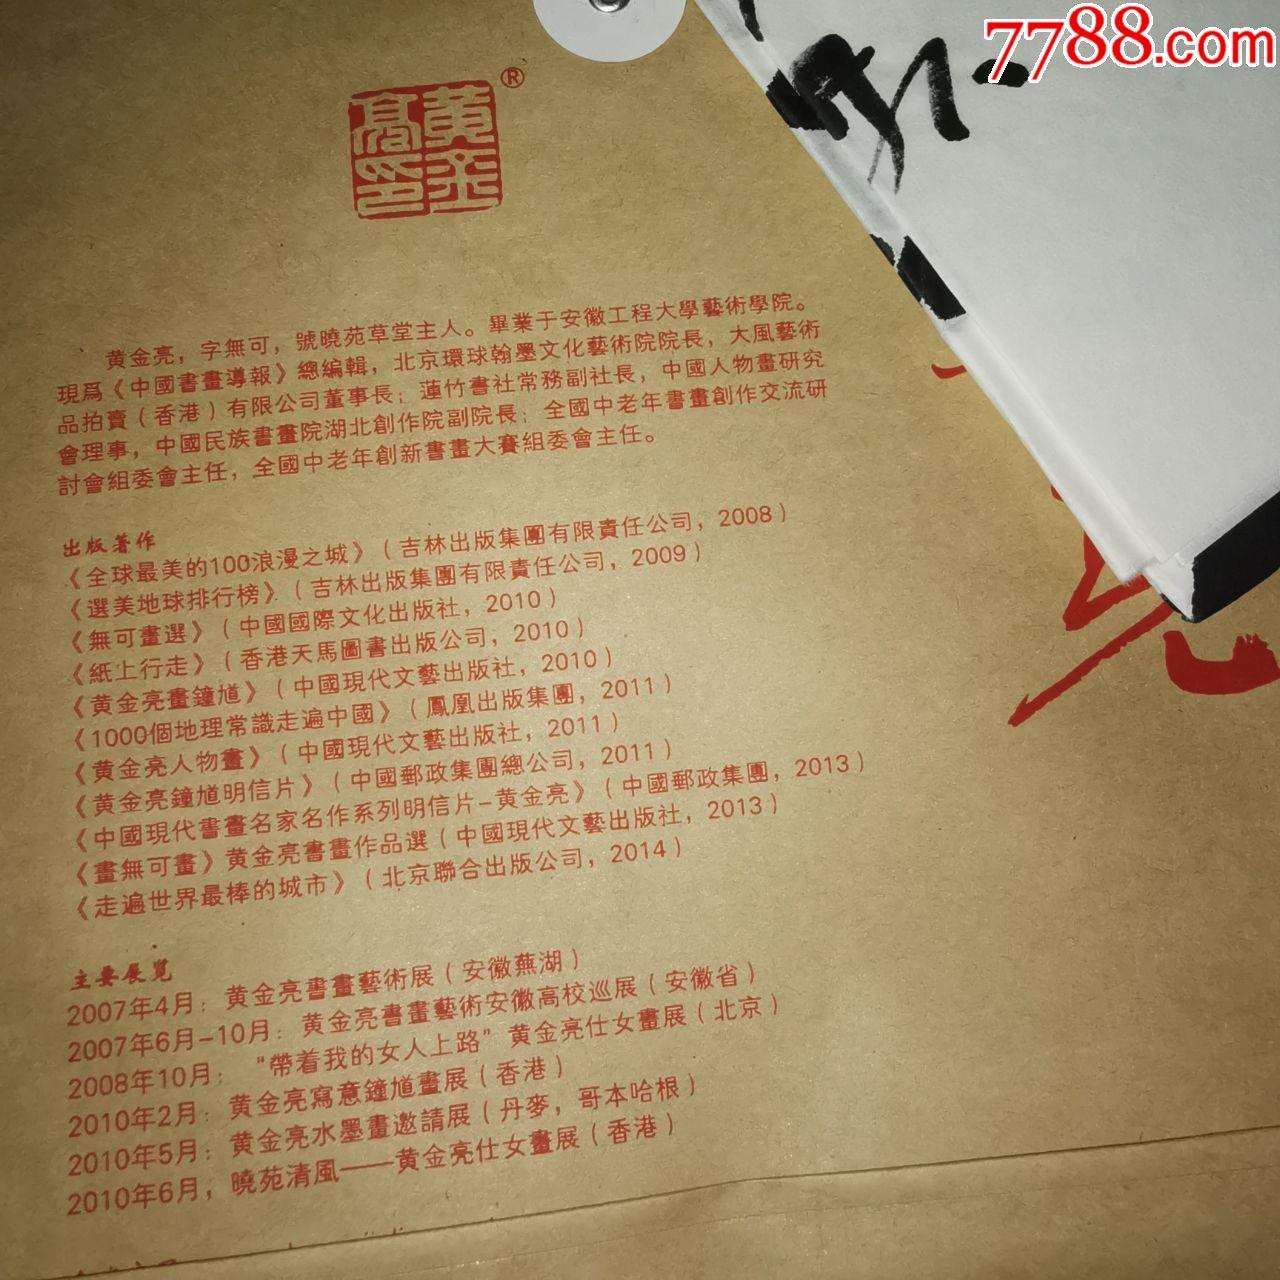 7788.com
®
黄金亮，字無可，號曉苑草堂主人。畢業于安徽工程大學藝術學院。
現爲《中國書畫導報》總編輯，北京環球翰墨文化藝術院院長，大風藝術
品拍賣（香港）有限公司董事長；蓮竹書社常務副社長，中國人物畫研究
會理事，中國民族書畫院湖北創作院副院長；全國中老年書畫創作交流研
討會組委會主任，全國中老年創新書畫大賽組委會主任。
出版著作
《全球最美的100浪漫之城》（吉林出版集團有限責任公司，2008）
《選美地球排行榜》（吉林出版集團有限責任公司，2009）
《無可畫選》（中國國際文化出版社，2010）
《紙上行走》（香港天馬圖書出版公司，2010）
《黄金亮畫鐘馗》（中國現代文藝出版社，2010）
《1000個地理常識走遍中國》（鳳凰出版集團，2011）
《黄金亮人物畫》（中國現代文藝出版社，2011）
《黄金亮鐘馗明信片》（中國郵政集團總公司，2011）
《中國現代書畫名家名作系列明信片-黄金亮》（中國郵政集團，2013）
《畫無可畫》黄金亮書畫作品選（中國現代文藝出版社，2013）
《走遍世界最棒的城市》（北京聯合出版公司，2014）
主要展覽
2007年4月：黄金亮書畫藝術展（安徽蕪湖）
2007年6月-10月：黄金亮書畫藝術安徽高校巡展（安徽省）
2008年10月：“帶着我的女人上路”黄金亮仕女畫展（北京）
2010年2月：黄金亮寫意鐘馗畫展（香港）
2010年5月：黄金亮水墨畫邀請展（丹麥，哥本哈根）
2010年6月，曉苑清風——黄金亮仕女畫展（香港）